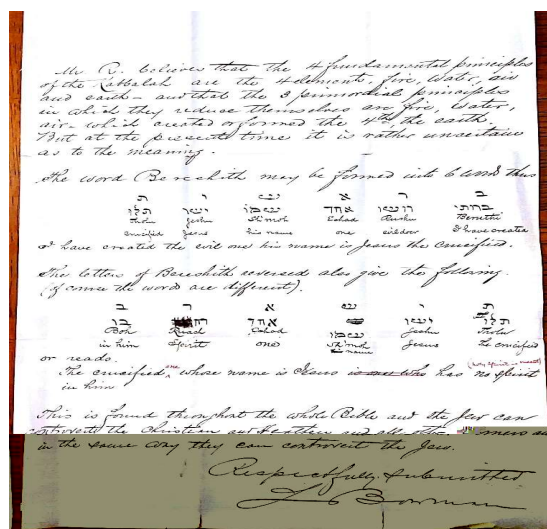 Mr R. believes that the 4 fundamental principles
of the Kabbalah are the 4 elements, fire, water, air
and earth – and that the 3 primordial principles
in which they reduce themselves are fire, water,
air – which created or formed the 4th, the earth.
But at the present time it is rather uncertain
as to the meaning.
The word Bereshith may be formed into 6 words thus
ת י ש א ר ב
תלוי ישו שמו אחד
Tholu Jeshu Shi'moh Echad Rushu Beruthi
crucified Jesus his name one evildoer I have created
I have created the evil one his name is Jesus the crucified.
The letters of Bereshith reversed also give the following.
(of course the words are different).
ב ר א ש י ת
בו אחד שמו ישו תלוי
Boh Ruach Echad Shi'moh Jeshu Tholu
in him Spirit one his name Jesus the crucified
or reads.
The crucified one whose name is Jesus is one who has no spirit
in him
This is found throughout the whole Bible and the Jew can
controvert the Christian and Heathen and all
in the same way they can controvert the Jew.
Respectfully submitted
L Bowman